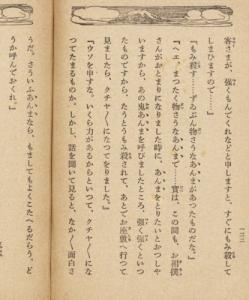 客さまが、強くもんでくれなどと申しますと、すぐにもみ殺して
しまひますので……」
「もみ殺す……ずゐぶん物さうなあんまがあつたものだな。」
「へエ、まつたく物さうなあんまで……實は、この間も、お相撲
さんがおとまりになりました時に、あんまをとりたいとおつしや
いますから、あの鬼あんまを呼びましたところ、強く強くといつ
たものですから、たうとうもみ殺されて、あとでお座敷へ行つて
見ましたら、クチヤ〳〵になつてをりました。」
「ウソを申すな。いくら力があるからといつて、クチヤ〳〵にな
つてたまるものか。しかし、話を聞いて見ると、なか〳〵面白さ
うだ。さういふあんまなら、もましてもよくこたへるだらう。ど
うか呼んでおくれ。」